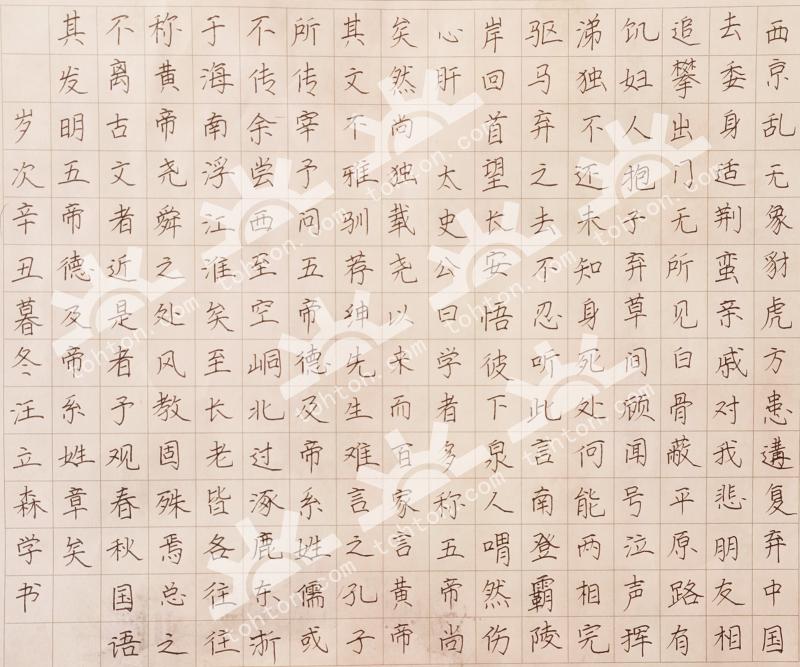 西京乱无象豺虎方患遘复弃中国
去委身适荆蛮亲戚对我悲朋友相
追攀出门无所见白骨蔽平原路有
饥妇人抱子弃草间顾闻号泣声挥
涕独不还未知身死处何能两相完
驱马弃之去不忍听此言南登霸陵
岸回首望长安悟彼下泉人喟然伤
心肝 太史公曰学者多称五帝尚
矣然尚独载尧以来而百家言黄帝
其文不雅驯荐绅先生难言之孔子
所传宰予问五帝德及帝系姓儒或
不传余尝西至空峒北过涿鹿东浙
于海南浮江淮矣至长老皆各往往
称黄帝尧舜之处风教固殊焉总之
不离古文者近是者予观春秋国语
其发明五帝德及帝系姓章矣
岁次辛丑暮冬汪立森学书
tohton.com
tohton.com
tohton.com
tohton.com
tohton.com
tohton.com
tohton.com
tohton.com